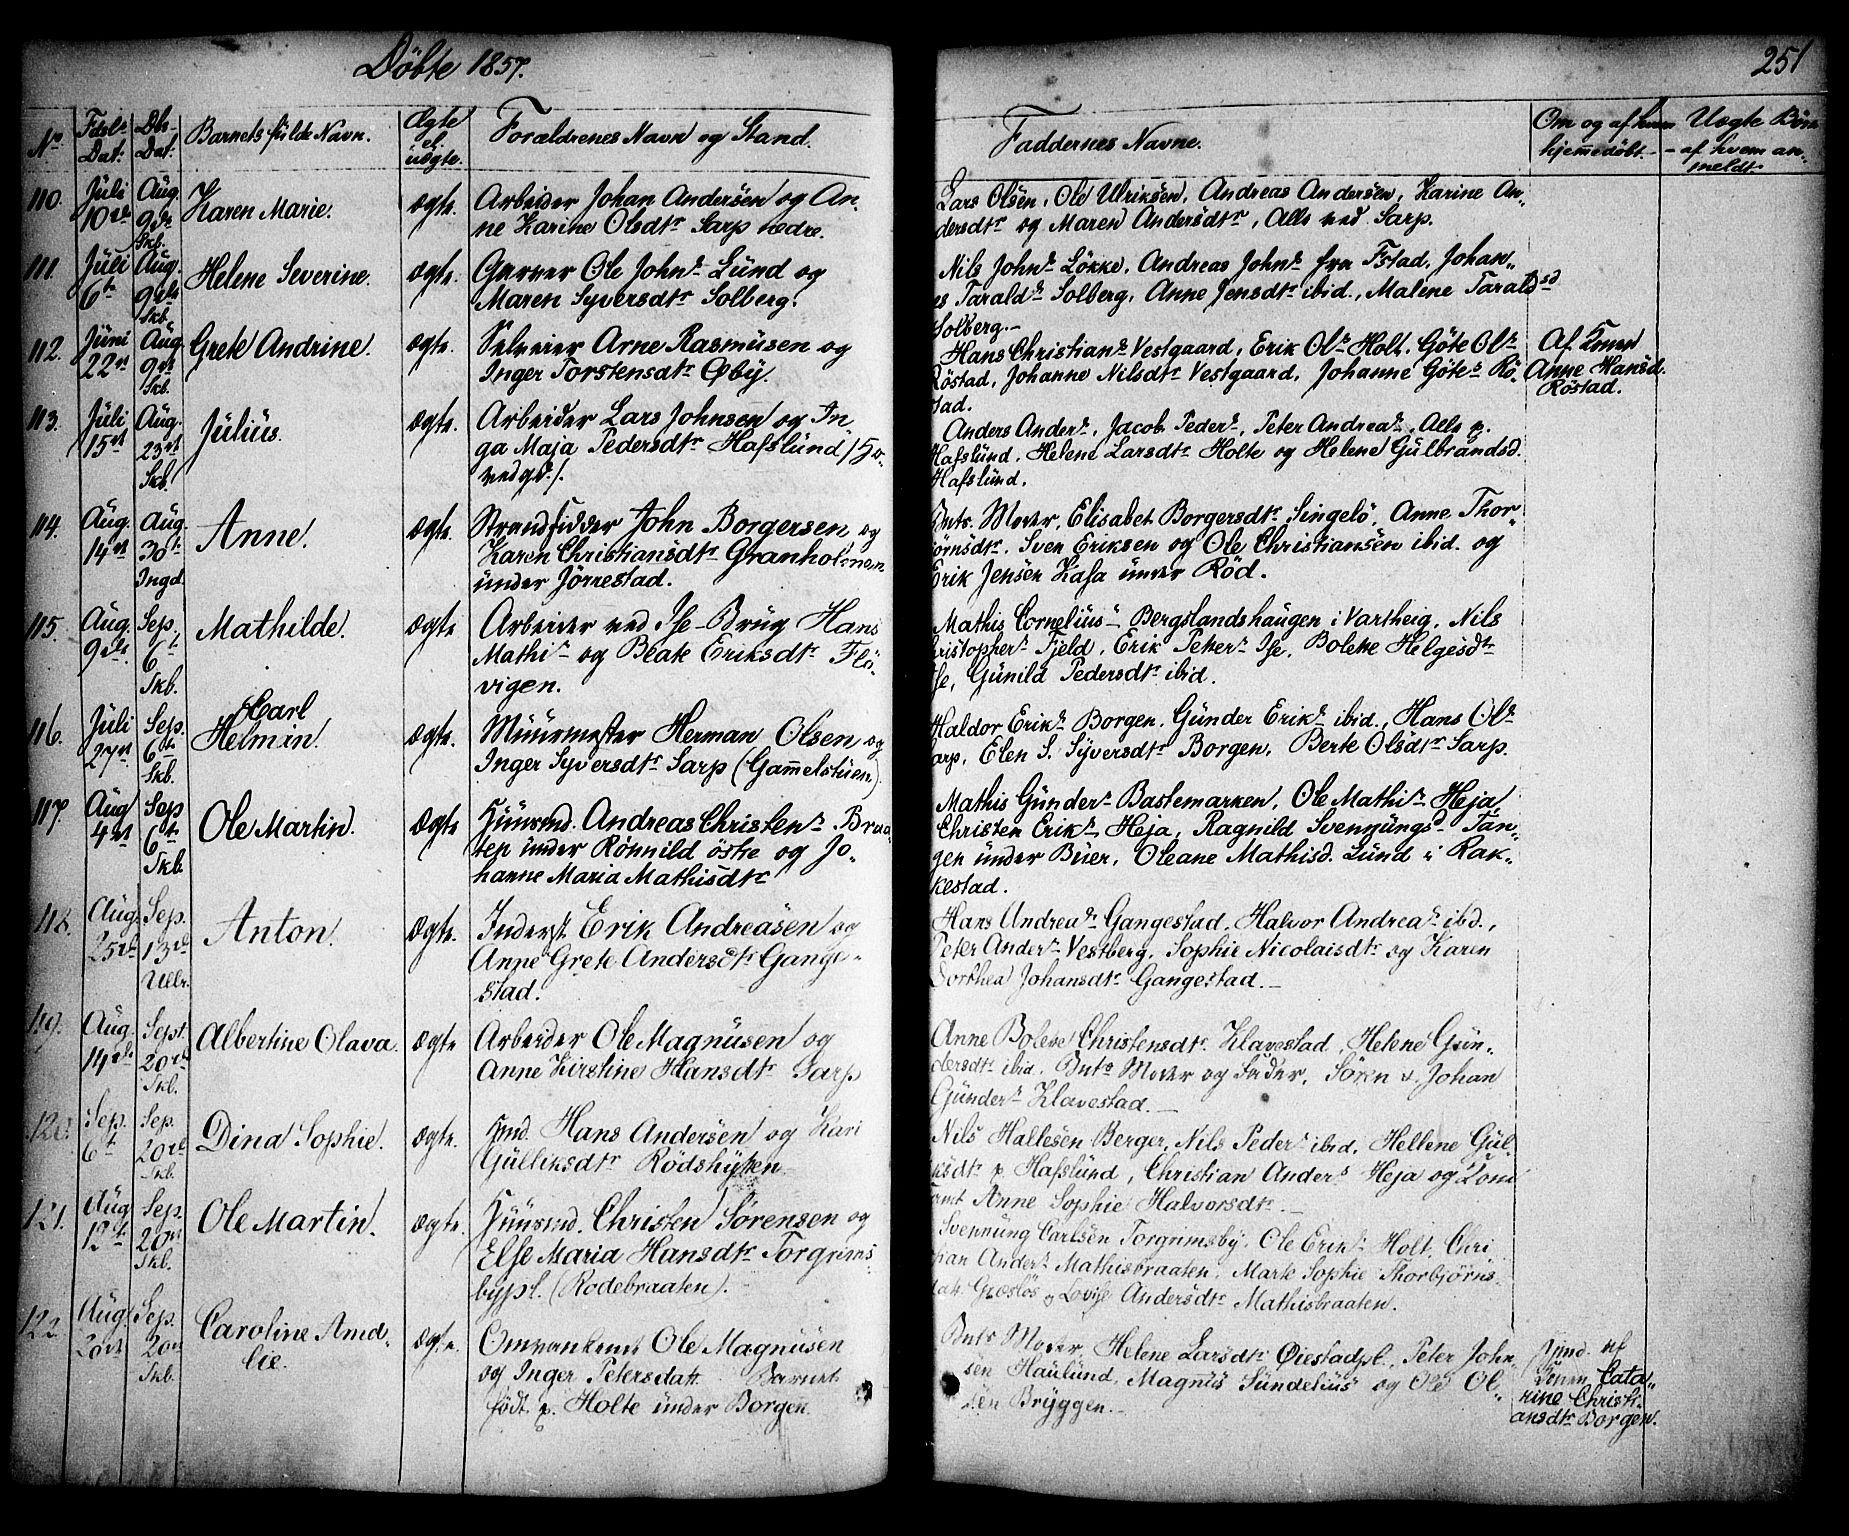 Döbte 1857.
251
No
Fdsls Dat:
Dbs Dat:
Barnets fulde Navn.
Ægte el. uægte.
Forældrenes Navn og Stand.
Faddernes Navne.
Om og af hvem hjemmedøbt.
Uægte Börn
- af hvem an-
meldt.
110.
Juli 10de
Aug. 9de Skb.
Karen Marie.
ægte.
Arbeider Johan Andersen og An-
ne Karine Olsdtr Sarp nedre.
Lars Olsen, Ole Ulriksen, Andreas Andersen, Karine An-
dersdtr og Maren Andersdtr, Alle ved Sarp.
111.
Juli 6te
Aug. 9de Skb.
Helene Severine.
ægte.
Garver Ole Johns Lund og
Maren Syversdtr Solberg.
Nils Johns Løkke, Andreas Johns fra Fstad, Johan-
es Taralds Solberg, Anne Jensdtr ibid., Malene Taraldsd
Solberg.-
112.
Juni 22de
Aug 9de Skb.
Grete Andrine.
ægte.
Selveier Arne Rasmusen og
Inger Torstensdtr Øby.
Hans Christians Vestgaard, Erik Ols Holt, Göte Ols
Röstad, Johanne Nilsdtr Vestgaard, Johanne Götes Rö-
stad.
Af Konen
Anne Hansd.
Röstad.
113.
Juli 15de
Aug. 23de Skb.
Julius.
ægte.
Arbeider Lars Johnsen og In-
ga Maja Pedersdtr Hafslund / Ho-
vedgd./.
Anders Anders, Jacob Peders, Peter Andreas, Alle p.
Hafslund, Helene Larsdtr Holte og Helene Gulbrandsd.
Hafslund.
114.
Aug. 14de
Aug. 30te Ingd.
Anne.
ægte.
Strandsidder John Borgersen og
Karen Christiansdtr Granholmen
under Jörrestad.
Bnts Moder, Elisabet Borgersdtr Singelö, Anne Thor-
björnsdtr, Sven Eriksen og Ole Christiansen ibid. og
Erik Jensen Kasa under Röd.
115.
Aug. 9de
Sep. 6 Skb.
Mathilde.
ægte
Arbeider ved Ise-Brug Hans
Mathis og Beate Eriksdtr Flö-
vigen.
Mathis Cornelius- Bergslandshaugen i Varteig, Nils
Christophers Fjeld, Erik Peters Ise, Bolette Helgesdtr
Ise, Gunild Pedersdtr ibid.
116.
Juli 27de
Sep. 6te Skb.
Carl
Helman.
ægte.
Muurmester Herman Olsen og
Inger Syversdtr Sarp (Gammelstuen)
Haldor Eriks Borgen, Gunder Eriks ibid., Hans Ols
Sarp, Elen S. Syversdtr Borgen, Berte Olsdtr Sarp.
117.
Aug 4de
Sep 6te Skb.
Ole Martin.
Ægte
Huusmd. Andreas Christens Braa-
ten under Römnild östre og Jo-
hanne Maria Mathisdtr
Mathis Gunders Bastemarken, Ole Mathis Heja
Christen Eriks Heja, Ragnild Svennungsd. Tan-
gen under Buer, Oleane Mathisd. Lund i Rak-
kestad.
118.
Aug. 25de
Sep. 13de Ullr.
Anton.
Ægte.
Inderst Erik Andreasen og
Anne Grete Andersdtr Gange-
stad.
Hans Andreas Gangestad, Halvor Andreas ibd.,
Peter Anders Vestberg, Sophie Nicolaisdtr og Karen
Dorthea Johansdtr Gangestad.-
119.
Aug. 14de
Sept. 20de Skb.
Albertine Olava.
Ægte
Arbeider Ole Magnusen og
Anne Kirstine Hansdtr Sarp
Anne Bolette Christensdtr Klavestad, Helene Gun-
dersdtr ibid. Bnts Moder og Fader, Sören &. Johan
Gunders Klavestad.-
120.
Sep. 6te
Sep. 20de Skb.
Dina Sophie.
ægte.
Hmd. Hans Andersen og Kari
Gulliksdtr Rödshytten.
Nils Hallesen Berger, Nils Peders ibid. Hellene Gul-
iksdtr p. Hafslund, Christian Anders Heja og
Anne Sophie Halvorsdtr.-
121.
Aug 12te
Sep. 20de Skb.
Ole Martin.
ægte.
Huusmd. Christen Sörensen og
Else Maria Hansdtr Torgrims-
bypl. (Rodebraaten).
Svennung Carlsen Torgrimsby, Ole Eriks Holt, Chri
stian Anders Mathisbraaten, Marte Sophie Thorbjörns-
datr og Lovise Andersdtr Mathisbraaten.
122.
Aug. 20de
Sep. 20de Skb.
Caroline Amd
lie.
ægte.
Ole Magnusen
og Inger Petersdatt. Barnet
födt p. Holte under Borgen.
Bnts Moder, Helene Larsdtr Øiestadpl., Peter John-
sen Haulund, Magnus Sundelius og Ole Ol-
sen Bryggen.-
Hjmd. af
Konen Cata-
rine Christi-
ansdtr Borgen.